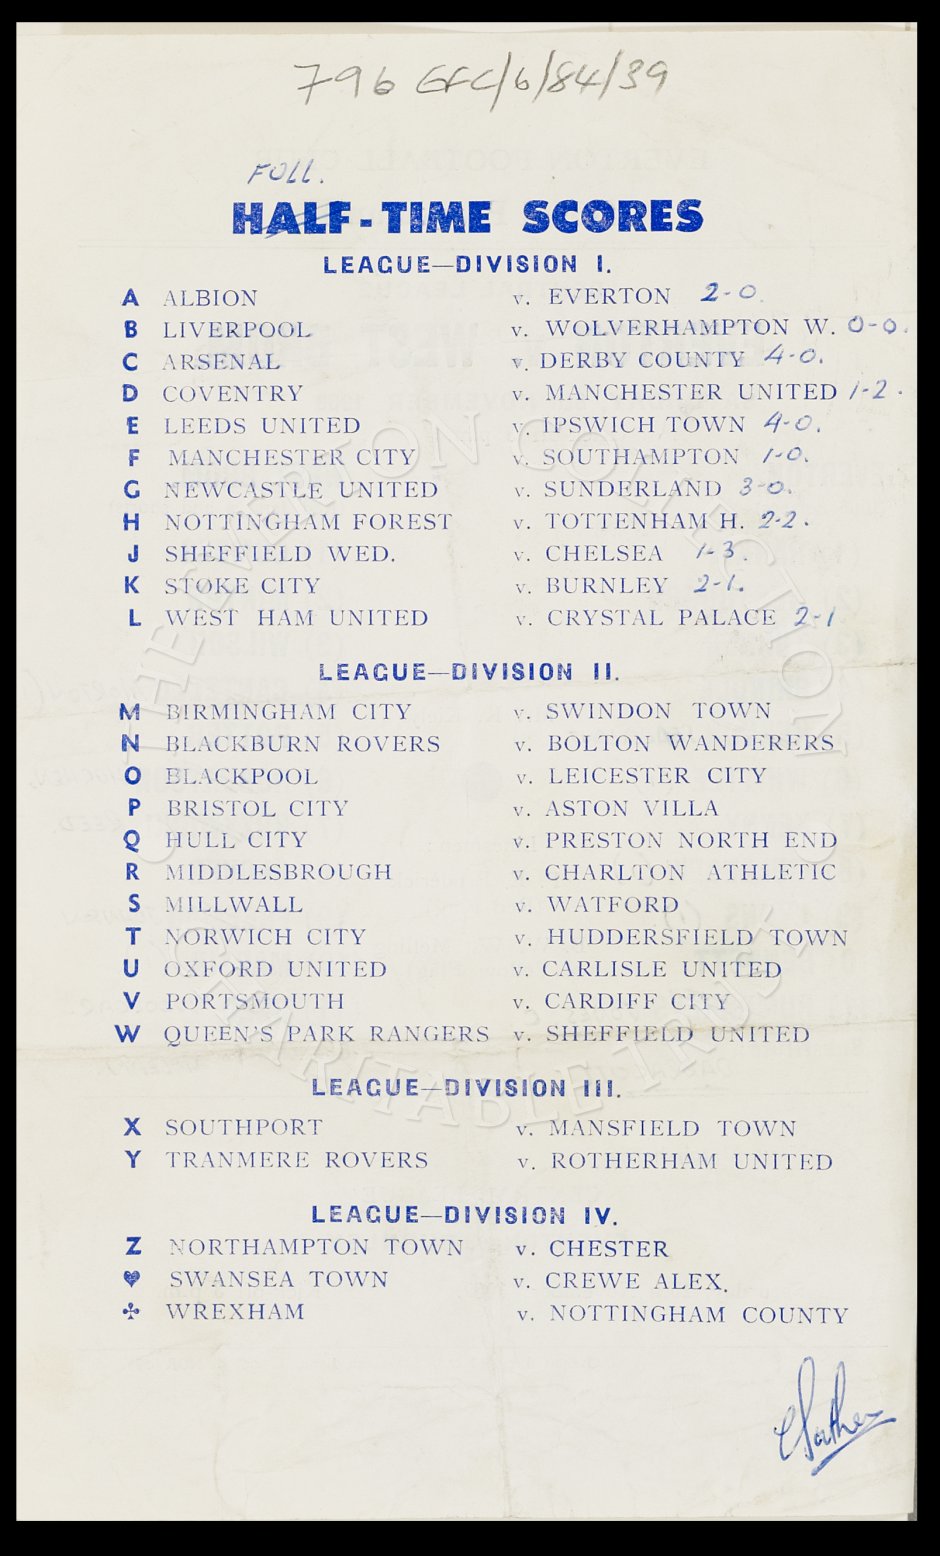 796 EFC/6/84/39
FULL.
HALF-TIME SCORES
LEAGUE—DIVISION I.
A ALBION v. EVERTON 2-0.
B LIVERPOOL v. WOLVERHAMPTON W. 0-0.
C ARSENAL v. DERBY COUNTY 4-0.
D COVENTRY v. MANCHESTER UNITED 1-2.
E LEEDS UNITED v. IPSWICH TOWN 4-0.
F MANCHESTER CITY v. SOUTHAMPTON 1-0.
G NEWCASTLE UNITED v. SUNDERLAND 3-0.
H NOTTINGHAM FOREST v. TOTTENHAM H. 2-2.
J SHEFFIELD WED. v. CHELSEA 1-3.
K STOKE CITY v. BURNLEY 2-1.
L WEST HAM UNITED v. CRYSTAL PALACE 2-1
LEAGUE—DIVISION II.
M BIRMINGHAM CITY v. SWINDON TOWN
N BLACKBURN ROVERS v. BOLTON WANDERERS
O BLACKPOOL v. LEICESTER CITY
P BRISTOL CITY v. ASTON VILLA
Q HULL CITY v. PRESTON NORTH END
R MIDDLESBROUGH v. CHARLTON ATHLETIC
S MILLWALL v. WATFORD
T NORWICH CITY v. HUDDERSFIELD TOWN
U OXFORD UNITED v. CARLISLE UNITED
V PORTSMOUTH v. CARDIFF CITY
W QUEEN'S PARK RANGERS v. SHEFFIELD UNITED
LEAGUE—DIVISION III.
X SOUTHPORT v. MANSFIELD TOWN
Y TRANMERE ROVERS v. ROTHERHAM UNITED
LEAGUE—DIVISION IV.
Z NORTHAMPTON TOWN v. CHESTER
♥ SWANSEA TOWN v. CREWE ALEX.
♣ WREXHAM v. NOTTINGHAM COUNTY
THE EVERTON COLLECTION
CHARITABLE TRUST